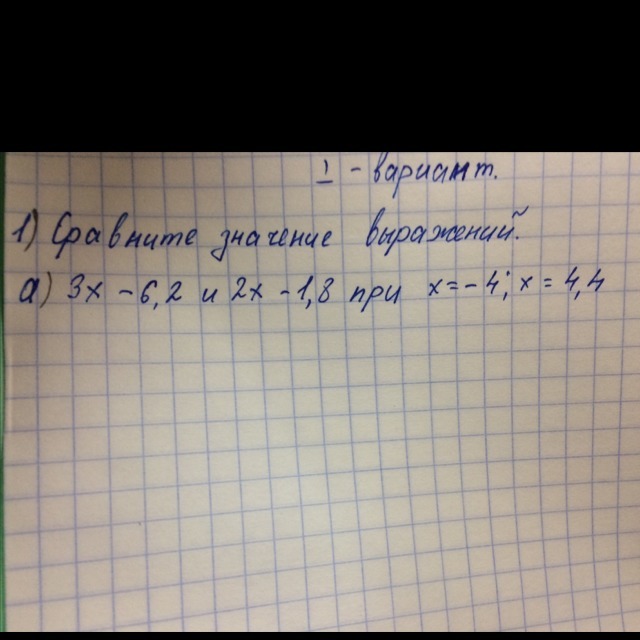 I - вариант.
1) Сравните значение выражений.
а) 3х - 6,2 и 2х - 1,8 при х = - 4; х = 4,4